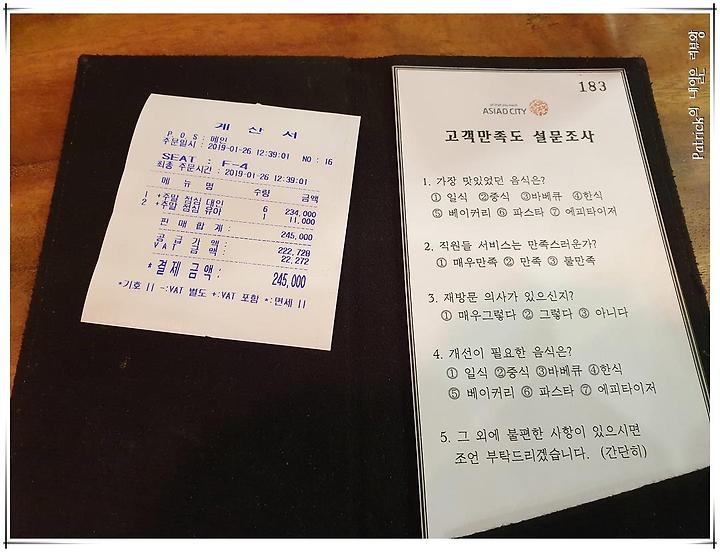 계 산 서
P O S : 메인
주문일시 : 2019-01-26 12:39:01 NO : 16
SEAT : F-4
최종 주문시간 : 2019-01-26 12:39:01
메 뉴 명 수량 금액
1 +주말 점심 대인 6 234,000
2 +주말 점심 유아 1 11,000
판 매 합 계 : 245,000
공 급 가 액 : 222,728
V A T 금 액 : 22,272
* 결 제 금 액 : 245,000
*기호 || -:VAT 별도 +:VAT 포함 *:면세 ||
183
ASIADCITY
고객만족도 설문조사
1. 가장 맛있었던 음식은?
① 일식 ②중식 ③바베큐 ④한식
⑤ 베이커리 ⑥ 파스타 ⑦ 에피타이저
2. 직원들 서비스는 만족스러운가?
① 매우만족 ② 만족 ③ 불만족
3. 재방문 의사가 있으신지?
① 매우그렇다 ② 그렇다 ③ 아니다
4. 개선이 필요한 음식은?
① 일식 ②중식 ③바베큐 ④한식
⑤ 베이커리 ⑥ 파스타 ⑦ 에피타이저
5. 그 외에 불편한 사항이 있으시면
조언 부탁드리겠습니다. (간단히)
Patrick의 내일은 리뷰왕